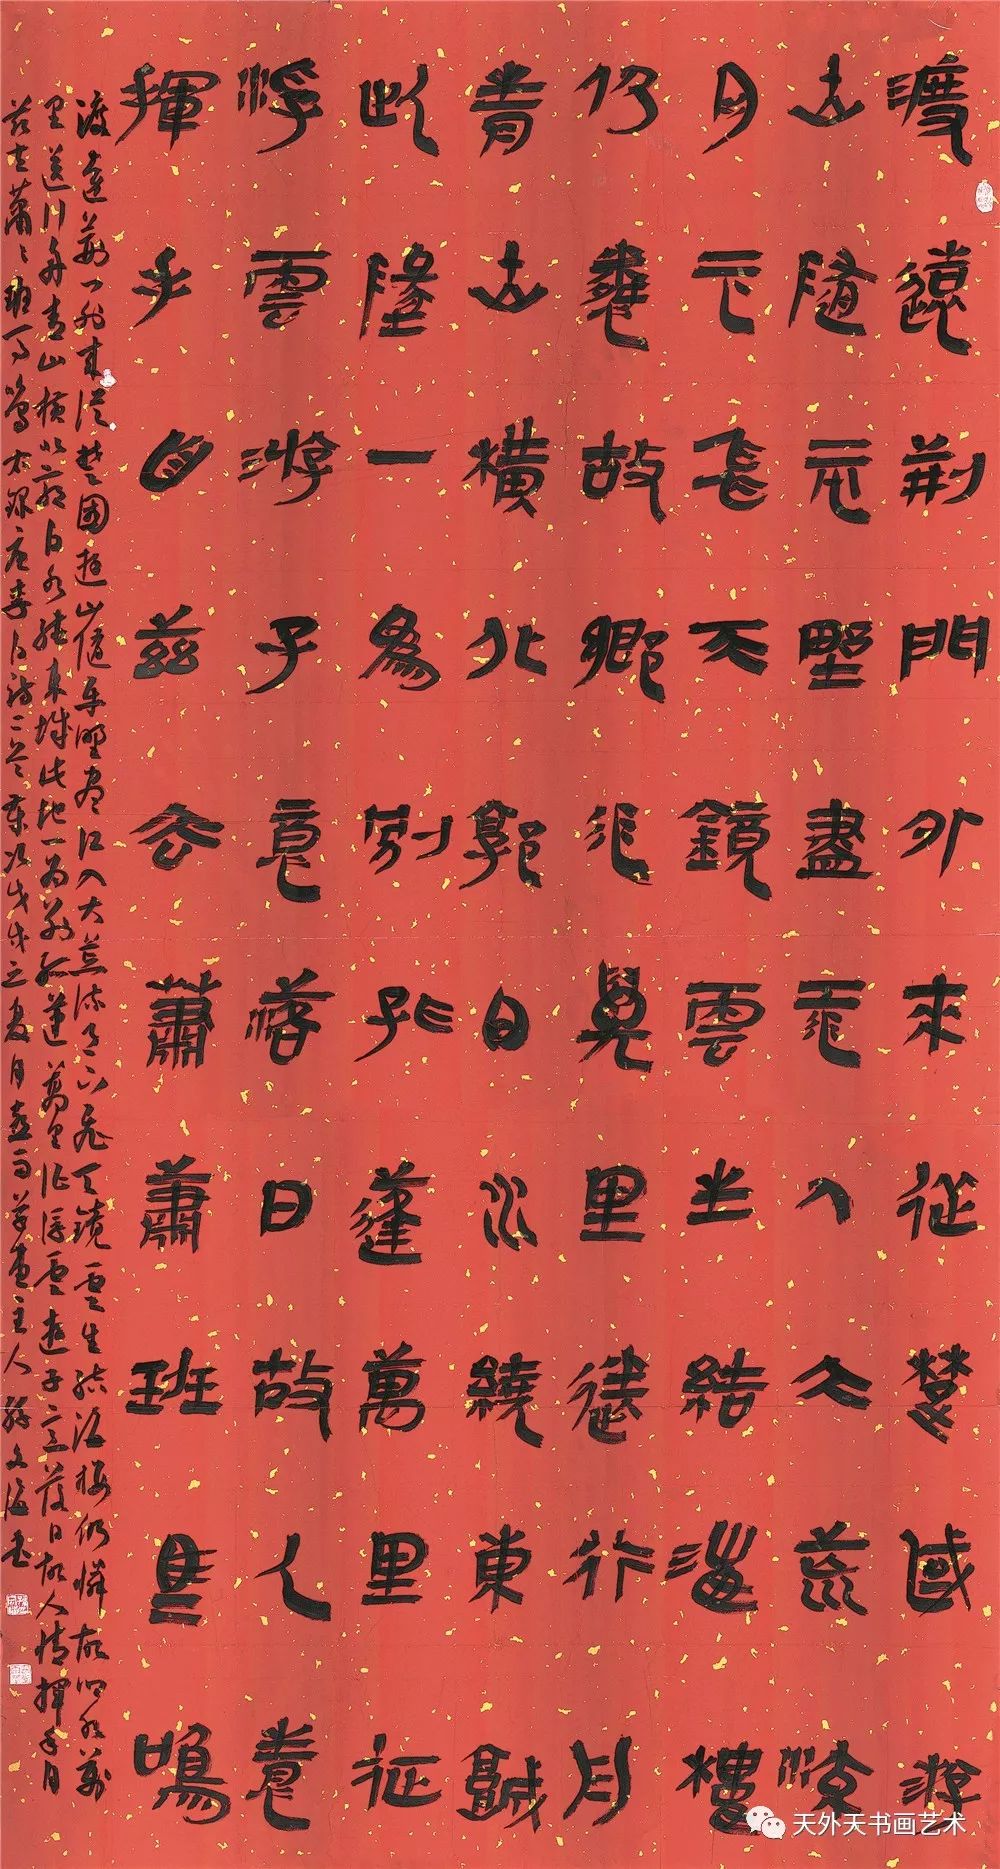 渡遠荆門外來從楚國游
山隨平野盡江入大荒流
月下飛天鏡雲生結海樓
仍憐故鄉水萬里送行舟
青山橫北郭白水繞東城
此地一為別孤蓬萬里征
浮雲游子意落日故人情
揮手自茲去蕭蕭班馬鳴
渡遠荆門外來從楚國遊山隨平野盡江入大荒流月下飛天鏡雲生結海樓仍憐故鄉水萬
里送行舟青山橫北郭白水繞東城此地一為別孤蓬萬里征浮雲遊子意落日故人情揮手自
茲去蕭蕭班馬鳴 右録唐李白詩二首 歲次戊戌之夏月 主人 書
天外天书画艺术